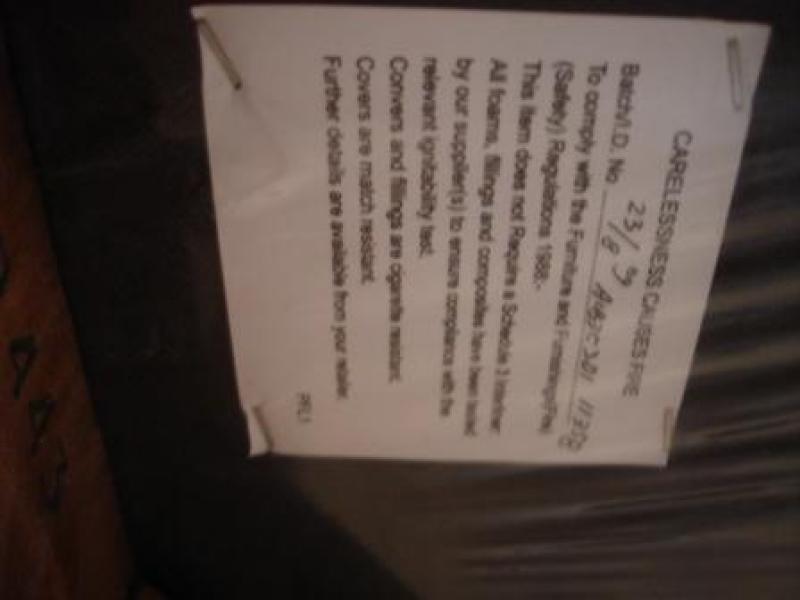 CARELESSNESS CAUSES FIRE
Batch/I.D. No. 23/8/9
To comply with the Furniture and Furnishings(Fire)
(Safety) Regulations 1988:-
This item does not Require a Schedule 3 Interliner.
All foams, fillings and composites have been tested
by our supplier(s) to ensure compliance with the
relevant ignitability test.
Convers and fillings are cigarette resistant.
Covers are match resistant.
Further details are available from your retailer.